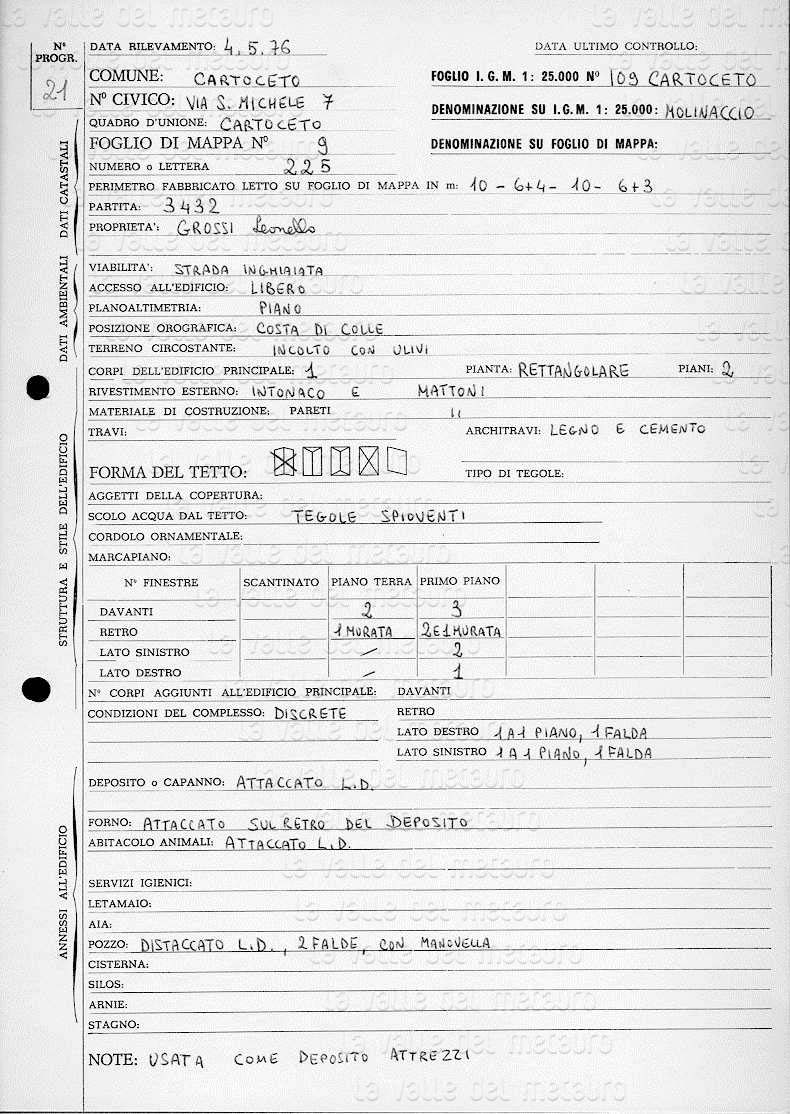 N° PROGR. 21
DATA RILEVAMENTO: 4.5.76 DATA ULTIMO CONTROLLO:
COMUNE: CARTOCETO FOGLIO I.G.M. 1: 25.000 N° 109 CARTOCETO
N° CIVICO: VIA S. MICHELE 7 DENOMINAZIONE SU I.G.M. 1: 25.000: MOLINACCIO
QUADRO D'UNIONE: CARTOCETO
FOGLIO DI MAPPA N° 9 DENOMINAZIONE SU FOGLIO DI MAPPA:
NUMERO o LETTERA 225
PERIMETRO FABBRICATO LETTO SU FOGLIO DI MAPPA IN m: 10 - 6+4 - 10 - 6+3
PARTITA: 3432
PROPRIETA': GROSSI Leonello
DATI CATASTALI
VIABILITA': STRADA INGHIAIATA
ACCESSO ALL'EDIFICIO: LIBERO
PLANOALTIMETRIA: PIANO
POSIZIONE OROGRAFICA: COSTA DI COLLE
TERRENO CIRCOSTANTE: INCOLTO CON ULIVI
DATI AMBIENTALI
CORPI DELL'EDIFICIO PRINCIPALE: 1 PIANTA: RETTANGOLARE PIANI: 2
RIVESTIMENTO ESTERNO: INTONACO E MATTONI
MATERIALE DI COSTRUZIONE: PARETI "
TRAVI: ARCHITRAVI: LEGNO E CEMENTO
FORMA DEL TETTO: TIPO DI TEGOLE:
AGGETTI DELLA COPERTURA:
SCOLO ACQUA DAL TETTO: TEGOLE SPIOVENTI
CORDOLO ORNAMENTALE:
MARCAPIANO:
N° FINESTRE SCANTINATO PIANO TERRA PRIMO PIANO
DAVANTI 2 3
RETRO 1 MURATA 2 E 1 MURATA
LATO SINISTRO — 2
LATO DESTRO — 1
STRUTTURA E STILE DELL'EDIFICIO
N° CORPI AGGIUNTI ALL'EDIFICIO PRINCIPALE: DAVANTI
CONDIZIONI DEL COMPLESSO: DISCRETE RETRO
LATO DESTRO 1 A 1 PIANO, 1 FALDA
LATO SINISTRO 1 A 1 PIANO, 1 FALDA
DEPOSITO o CAPANNO: ATTACCATO L.D.
FORNO: ATTACCATO SUL RETRO DEL DEPOSITO
ABITACOLO ANIMALI: ATTACCATO L.D.
SERVIZI IGIENICI:
LETAMAIO:
AIA:
POZZO: DISTACCATO L.D., 2 FALDE, CON MANOVELLA
CISTERNA:
SILOS:
ARNIE:
STAGNO:
ANNESSI ALL'EDIFICIO
NOTE: USATA COME DEPOSITO ATTREZZI
la valle del metauro